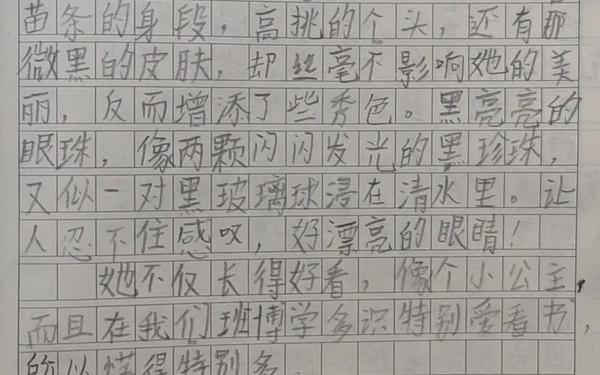 苗条的身段，高挑的个头，还有那
微黑的皮肤，却丝毫不影响她的美
丽，反而增添了些秀色。黑亮亮的
眼珠，像两颗闪闪发光的黑珍珠，
又似一对黑玻璃球浸在清水里。让
人忍不住感叹，好漂亮的眼睛！
她不仅长得好看，像个小公主，
而且在我们班博学多识特别爱看书，
所以懂得特别多